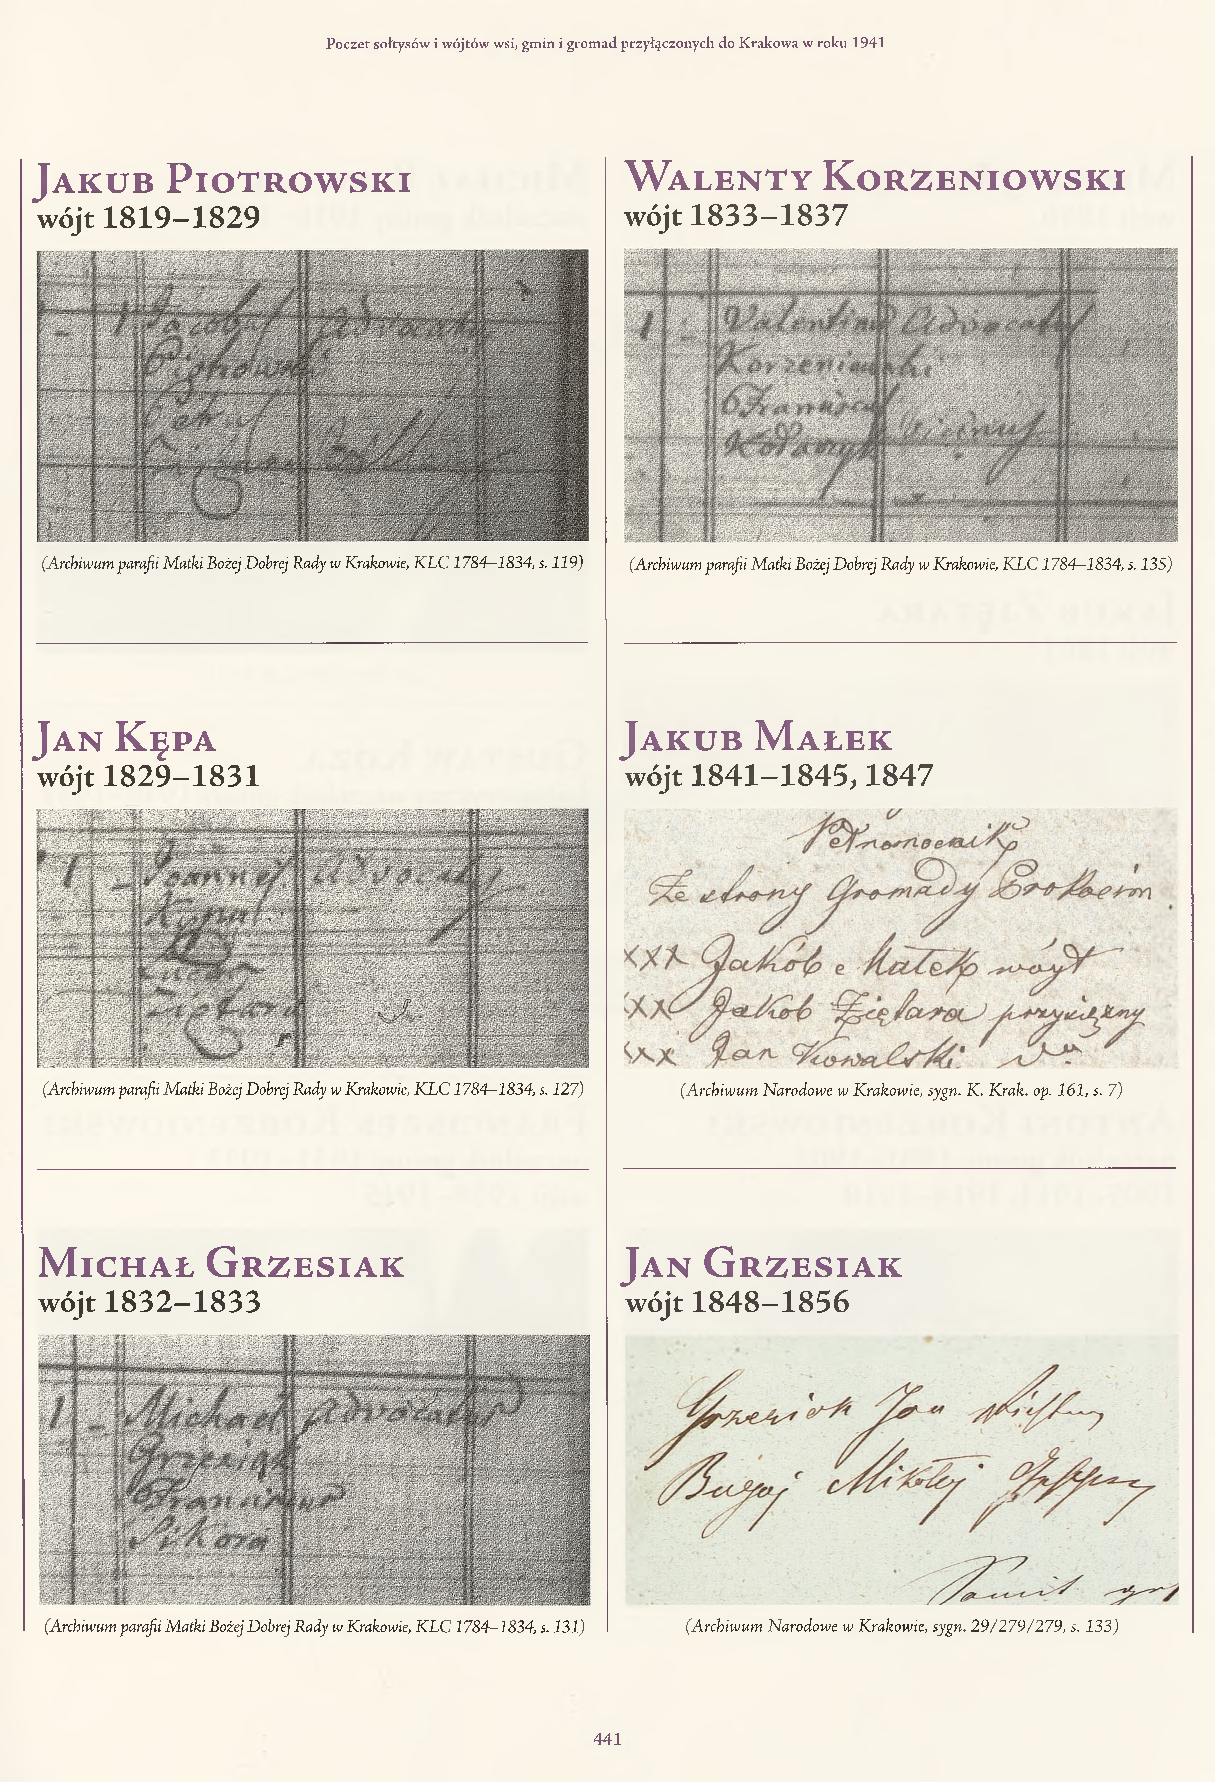 Poczet sołtysów i wójtów wsi, gmin i gromad przyłączonych do Krakowa w roku 1941
Jakub Piotrowski
wójt 1819–1829
1 Jacobus Advocatus
Piotrowski
Petrus
(Archiwum parafii Matki Bożej Dobrej Rady w Krakowie, KLC 1784–1834, s. 119)
Jan Kępa
wójt 1829–1831
1 – Joannes Advocatus
Kępa
Ziętara
(Archiwum parafii Matki Bożej Dobrej Rady w Krakowie, KLC 1784–1834, s. 127)
Michał Grzesiak
wójt 1832–1833
1 – Michael Advocatus
Grzesiak
Franciscus
Sikora
(Archiwum parafii Matki Bożej Dobrej Rady w Krakowie, KLC 1784–1834, s. 131)
Walenty Korzeniowski
wójt 1833–1837
1 – Valentinus Advocatus
Korzeniowski
Franciscus
Vicinus
(Archiwum parafii Matki Bożej Dobrej Rady w Krakowie, KLC 1784–1834, s. 135)
Jakub Małek
wójt 1841–1845, 1847
Pełnomocnik
Ze strony Gromady Prokocim
XXX Jakób Małek wóyt
XXX Jakób Ziętara przysiężny
XXX Jan Kowalski
(Archiwum Narodowe w Krakowie, sygn. K. Krak. op. 161, s. 7)
Jan Grzesiak
wójt 1848–1856
Grzesiak Jan
Bugaj Mikołaj
(Archiwum Narodowe w Krakowie, sygn. 29/279/279, s. 133)
441